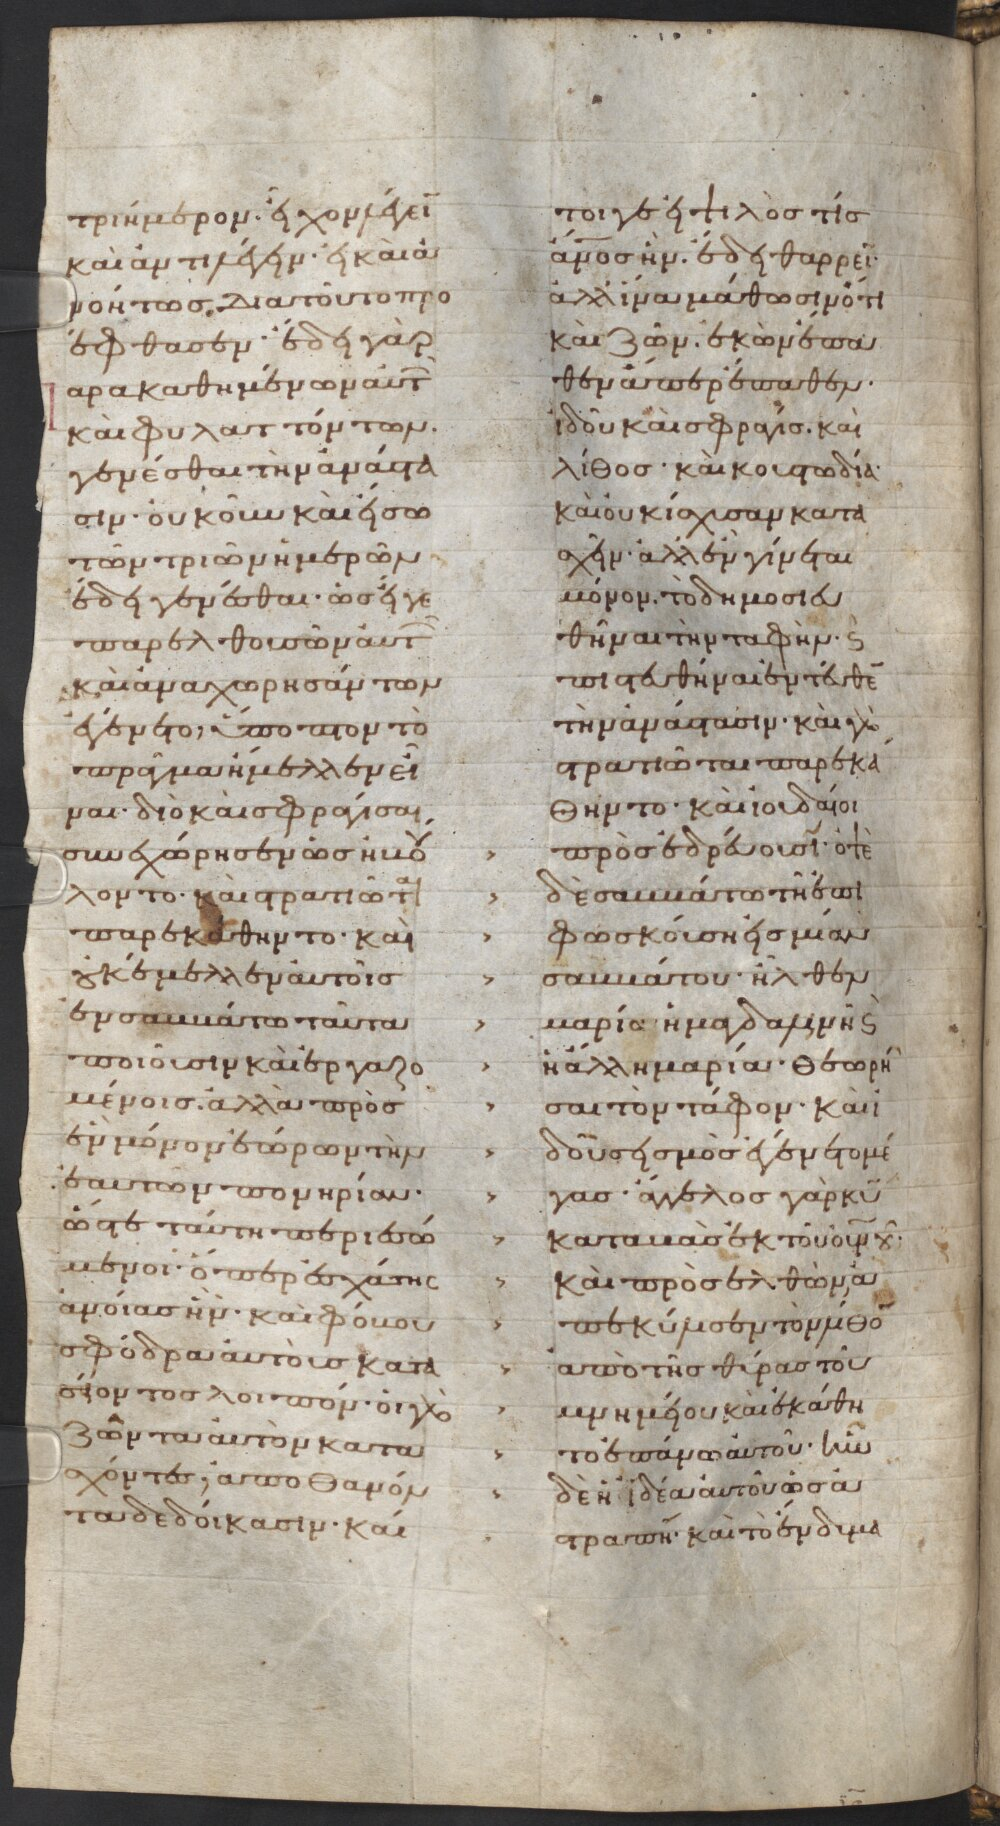 τριήμερον· εἰ χοντ
καὶ ἀντιλέγειν· εἰ καὶ ἀ
νοήτως. Διατοῦτο προ
έφθασεν· ἔδει γὰρ
παρακαθημένων αὐτ
καὶ φυλαττόντων.
γενέσθαι τὴν ἀνάστα
σιν· οὐκοῦν καὶ εἴσω
τῶν τριῶν ἡμερῶν
ἔδει γενέσθαι· ὡς εἴγε
παρελθουσῶν αὐτ
καὶ ἀναχωρησάντων
ἐγένετο, ὕποπτον τὸ
πρᾶγμα ἤμελλεν εἶ
ναι· διὸ καὶ σφραγίσαι
συνεχώρησεν ὡς ἠβού
λοντο· καὶ στρατιῶται
παρεκάθηντο· καὶ
οὐκ ἔμελλεν αὐτοῖς
ἐν σαββάτω ταῦτα
ποιοῦσιν καὶ ἐργαζο
μένοις. ἀλλὰ πρὸς
ἓν μόνον ἑώρων τὴν
ἑαυτῶν πονηρίαν.
ὥστε ταύτη περισώ
μενοι· ὅπερ ἐσχάτης
ἀνοίας ἦν· καὶ φόβου
σφόδρα αὐτοὺς κατα
σείοντος λοιπόν· οἱ γὰρ
ζῶντα αὐτὸν κατα
σχόντες, ἀποθανόν
τα δεδοίκασιν· καί
τοι γε εἰ ψιλὸς τίς
ἄνος ἦν. ἔδει θαρρεῖν·
ἀλλ ἵνα μάθωσιν ὅτι
καὶ ζῶν. ἑκὼν ἔπα
θεν ἅπερ ἔπαθεν.
ἰδοὺ καὶ σφραγίς. καὶ
λίθος· καὶ κουστωδία·
καὶ οὐκ ἴσχυσαν κατα
σχεῖν· ἀλλ ἓν γίνεται
μόνον. τὸ δημοσιευ
θῆναι τὴν ταφὴν· ϛ
πιστευθῆναι ἐντεῦθε
τὴν ἀνάστασιν· καὶ γὰρ
στρατιῶται παρεκά
θηντο· καὶ ἰουδαῖοι
> προσεδρεύουσι· ὀψὲ
> δὲ σαββάτω τῆ ἐπι
> φωσκούση εἰς μίαν
> σαββάτου· ἦλθεν
> μαρία ἡ μαγδαληνὴ ϛ
> ἡ ἄλλη μαρία· θεωρῆ
> σαι τὸν τάφον· καὶ ἰ
> δοὺ σεισμὸς ἐγένετο μέ
> γας· ἄγγελος γὰρ κυ
> καταβὰς ἐκ τοῦ ουνου·
> καὶ προσελθὼν ἀ
> πεκύλισεν τὸν λίθο
> ἀπὸ τῆς θύρας τοῦ
> μνημείου καὶ ἐκάθη
> το ἐπάνω αὐτοῦ· ἦν
> δὲ ἡ ἰδέα αὐτοῦ ὡς ἀ
> στραπὴ· καὶ τὸ ἔνδυμα